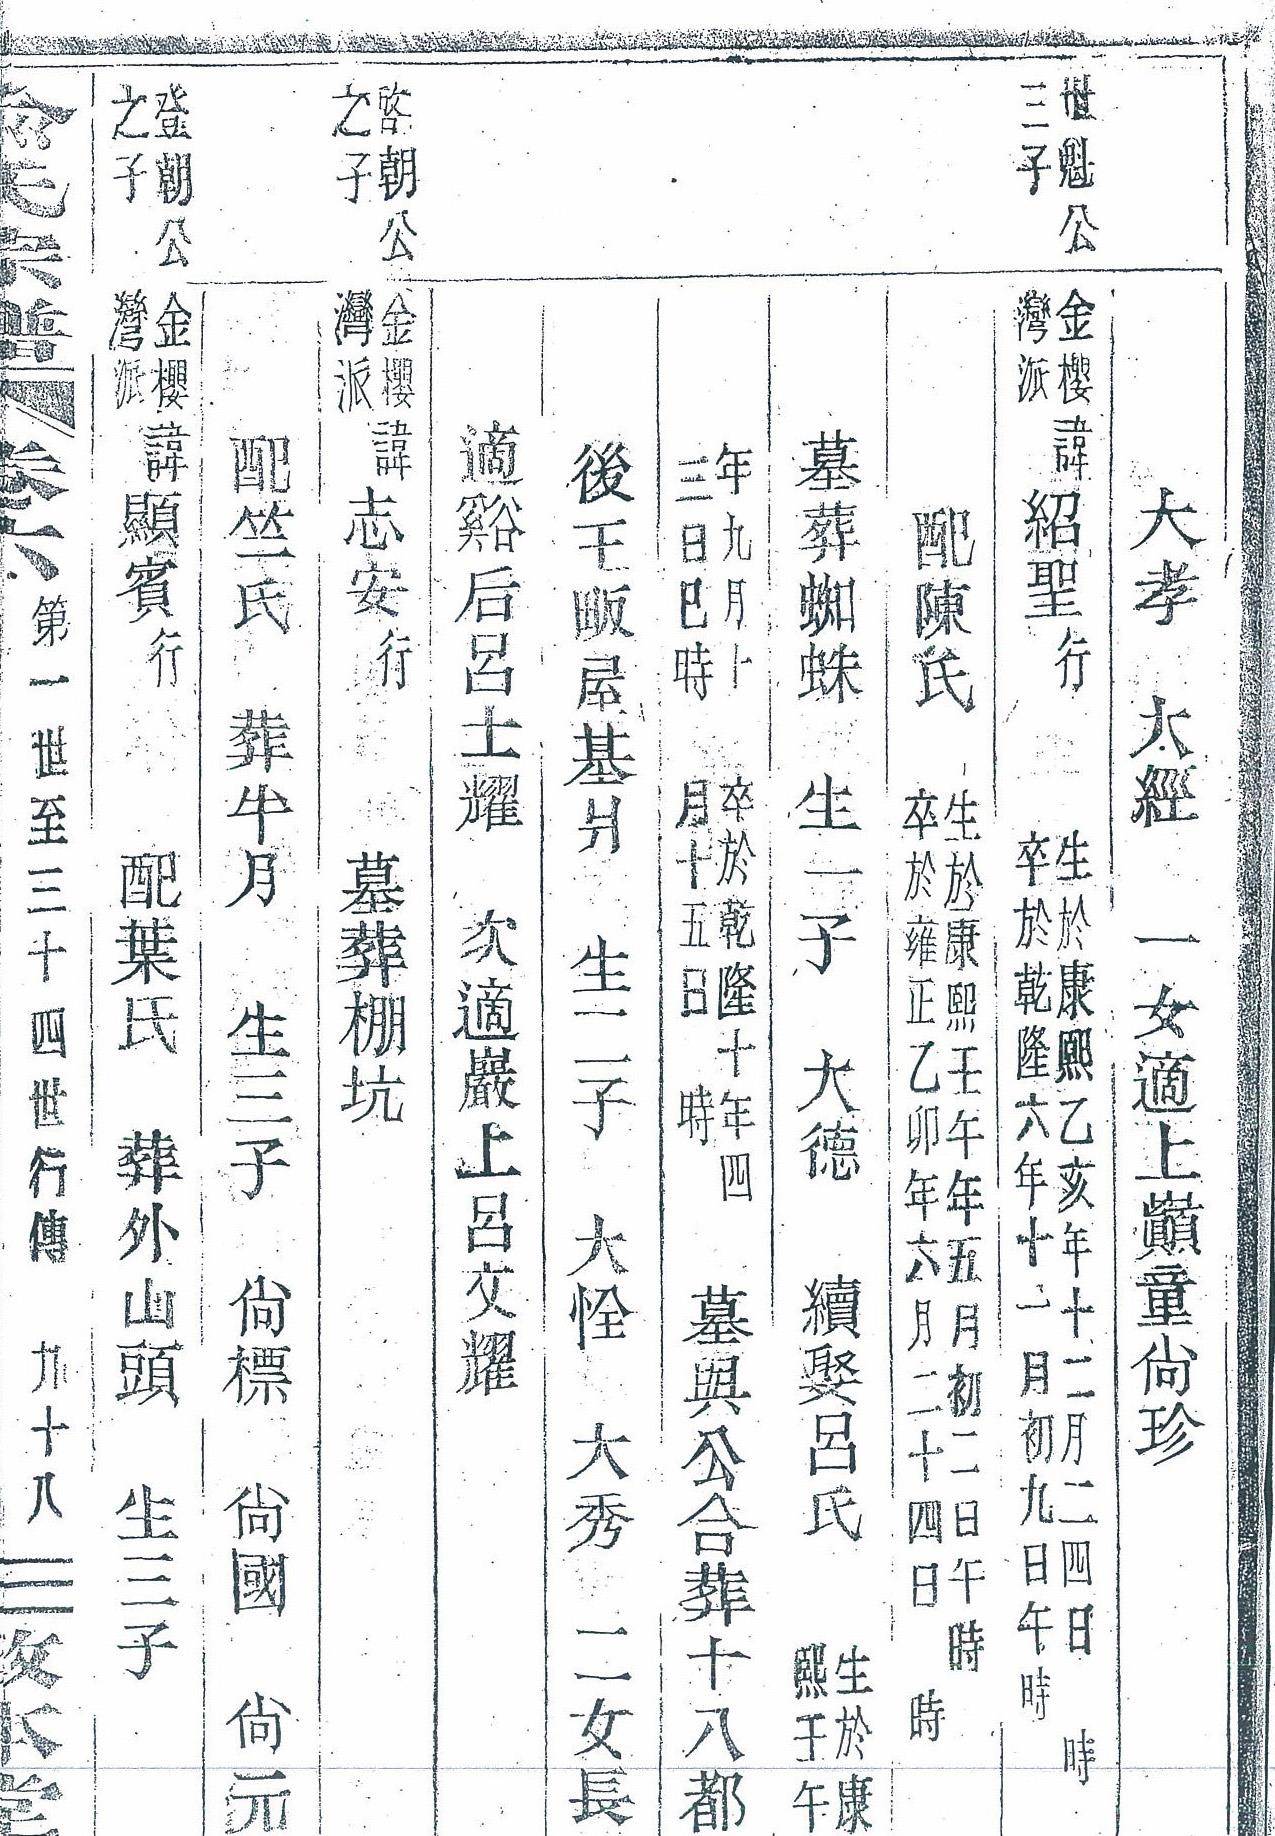 大孝 大經 一女適上巔童尚珍
世魁公
三子
金櫻
灣派
諱紹聖行
生於康熙乙亥年十二月二四日 時
卒於乾隆六年十一月初九日午時
配陳氏
生於康熙壬午年五月初二日午時
卒於雍正乙卯年六月二十四日 時
墓葬蜘蛛 生一子 大德 續娶呂氏
生於康
熙壬午
年九月十
三日巳時
卒於乾隆十年四
月十五日 時
墓與公合葬十八都
後王畈屋基爿 生二子 大恮 大秀 二女長
適谿后呂士耀 次適巖上呂文耀
啓朝公
之子
金櫻
灣派
諱志安行 墓葬棚坑
配竺氏 葬半月 生三子 尚標 尚國 尚元
登朝公
之子
金櫻
灣派
諱顯賓行 配葉氏 葬外山頭 生三子
氏宗譜 卷六 第一世至三十四世行傳 九十八 三 本堂